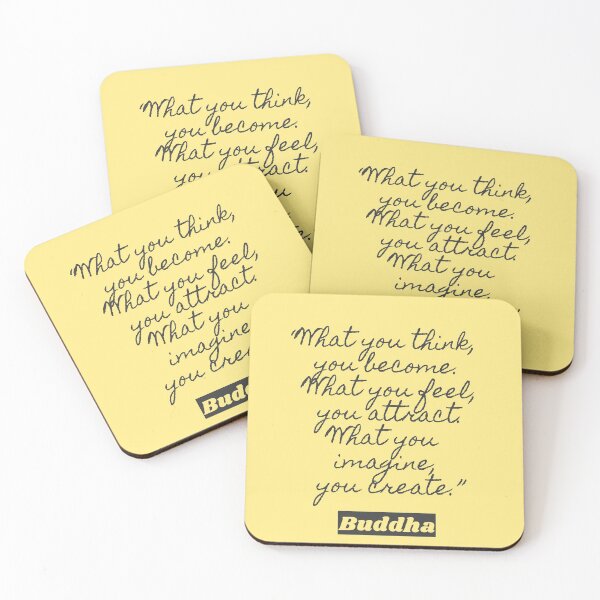 “What you think,
you become.
What you feel,
you attract.
you
“What you think,
you become.
What you feel,
you attract.
What you
imagine,
“What you think,
you become.
What you feel,
you attract.
What you
imagine
you crea
Budd
“What you think,
you become.
What you feel,
you attract.
What you
imagine,
you create.”
Buddha